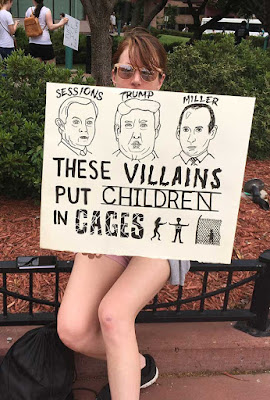 SESSIONS TRUMP MILLER
THESE VILLAINS
PUT CHILDREN
IN CAGES